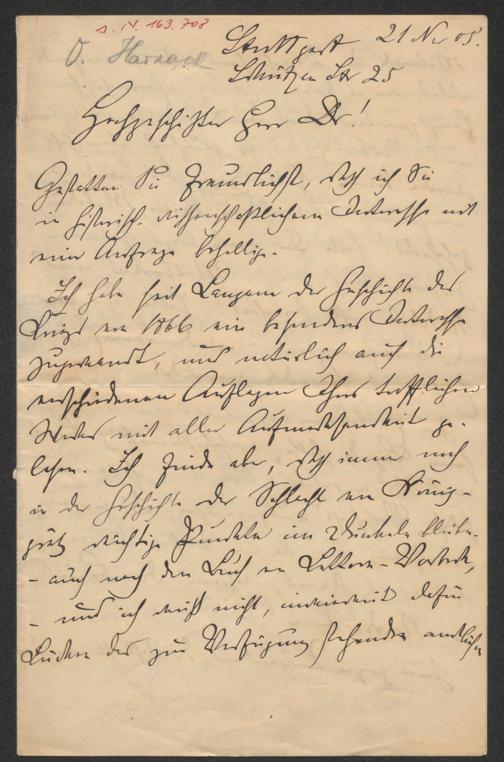 I. N. 163.708
O. Harnack
Stuttgart 21 Nov 05.
Schützen Str 25
Hochgeehrter Herr Dr.!
Gestatten Sie freundlichst, daß ich Sie
in historisch-wissenschaftlichem Interesse mit
einer Anfrage behellige.
Ich habe seit Langem der Geschichte des
Kriegs von 1866 ein besonderes Interesse
zugewandt, und natürlich auch die
verschiedenen Auflagen Ihres trefflichen
Werkes mit aller Aufmerksamkeit ge-
lesen. Ich finde aber, daß immer noch
in der Geschichte der Schlacht von König-
grätz wichtige Punkte im Dunkeln bleiben
- auch nach dem Buch von Lettow-Vorbeck,
- und ich weiß nicht, inwieweit dafür
Lücken des zur Verfügung stehenden amtlichen